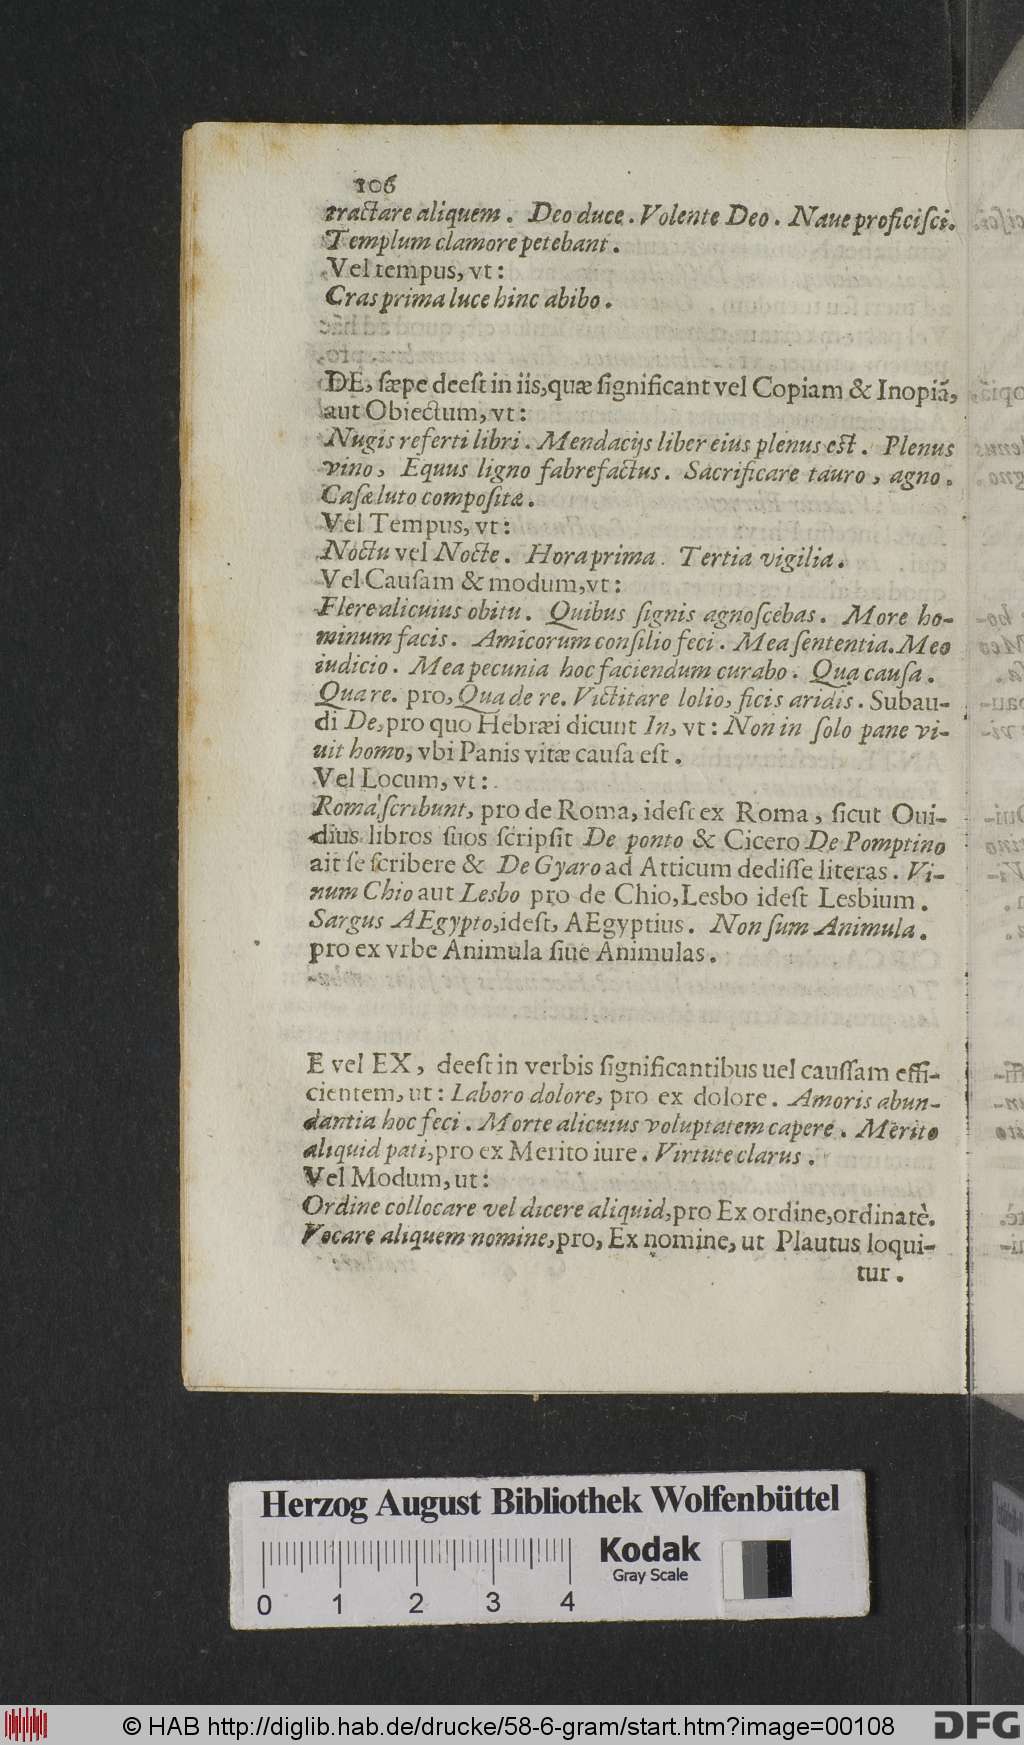 106
tractare aliquem. Deo duce. Volente Deo. Naue proficiſci.
Templum clamore petebant.
Vel tempus, vt:
Cras prima luce hinc abibo.
DE, ſæpe deeſt in iis, quæ ſignificant vel Copiam & Inopiã,
aut Obiectum, vt:
Nugis referti libri. Mendacijs liber eius plenus est. Plenus
vino, Equus ligno fabrefactus. Sacrificare tauro, agno.
Caſæ luto compoſitæ.
Vel Tempus, vt:
Noctu vel Nocte. Hora prima. Tertia vigilia.
Vel Cauſam & modum, vt:
Flere alicuius obitu. Quibus ſignis agnoſcebas. More ho-
minum facis. Amicorum conſilio feci. Mea ſententia. Meo
iudicio. Mea pecunia hoc faciendum curabo. Qua cauſa.
Qua re. pro, Qua de re. Victitare lolio, ficis aridis. Subau-
di De, pro quo Hebræi dicunt In, vt: Non in ſolo pane vi-
uit homo, vbi Panis vitæ cauſa eſt.
Vel Locum, vt:
Roma ſcribunt, pro de Roma, ideſt ex Roma, ſicut Oui-
dius libros ſuos ſcripſit De ponto & Cicero De Pomptino
ait ſe ſcribere & De Gyaro ad Atticum dediſſe literas. Vi-
num Chio aut Lesbo pro de Chio, Lesbo ideſt Lesbium.
Sargus AEgypto, ideſt, AEgyptius. Non ſum Animula.
pro ex vrbe Animula ſiue Animulas.
E vel EX, deeſt in verbis ſignificantibus uel cauſſam effi-
cientem, ut: Laboro dolore, pro ex dolore. Amoris abun-
dantia hoc feci. Morte alicuius voluptatem capere. Merito
aliquid pati, pro ex Merito iure. Virtute clarus.
Vel Modum, ut:
Ordine collocare vel dicere aliquid, pro Ex ordine, ordinatè.
Vocare aliquem nomine, pro, Ex nomine, ut Plautus loqui-
tur.
Herzog August Bibliothek Wolfenbüttel
Kodak
Gray Scale
0 1 2 3 4
© HAB http://diglib.hab.de/drucke/58-6-gram/start.htm?image=00108
DFG